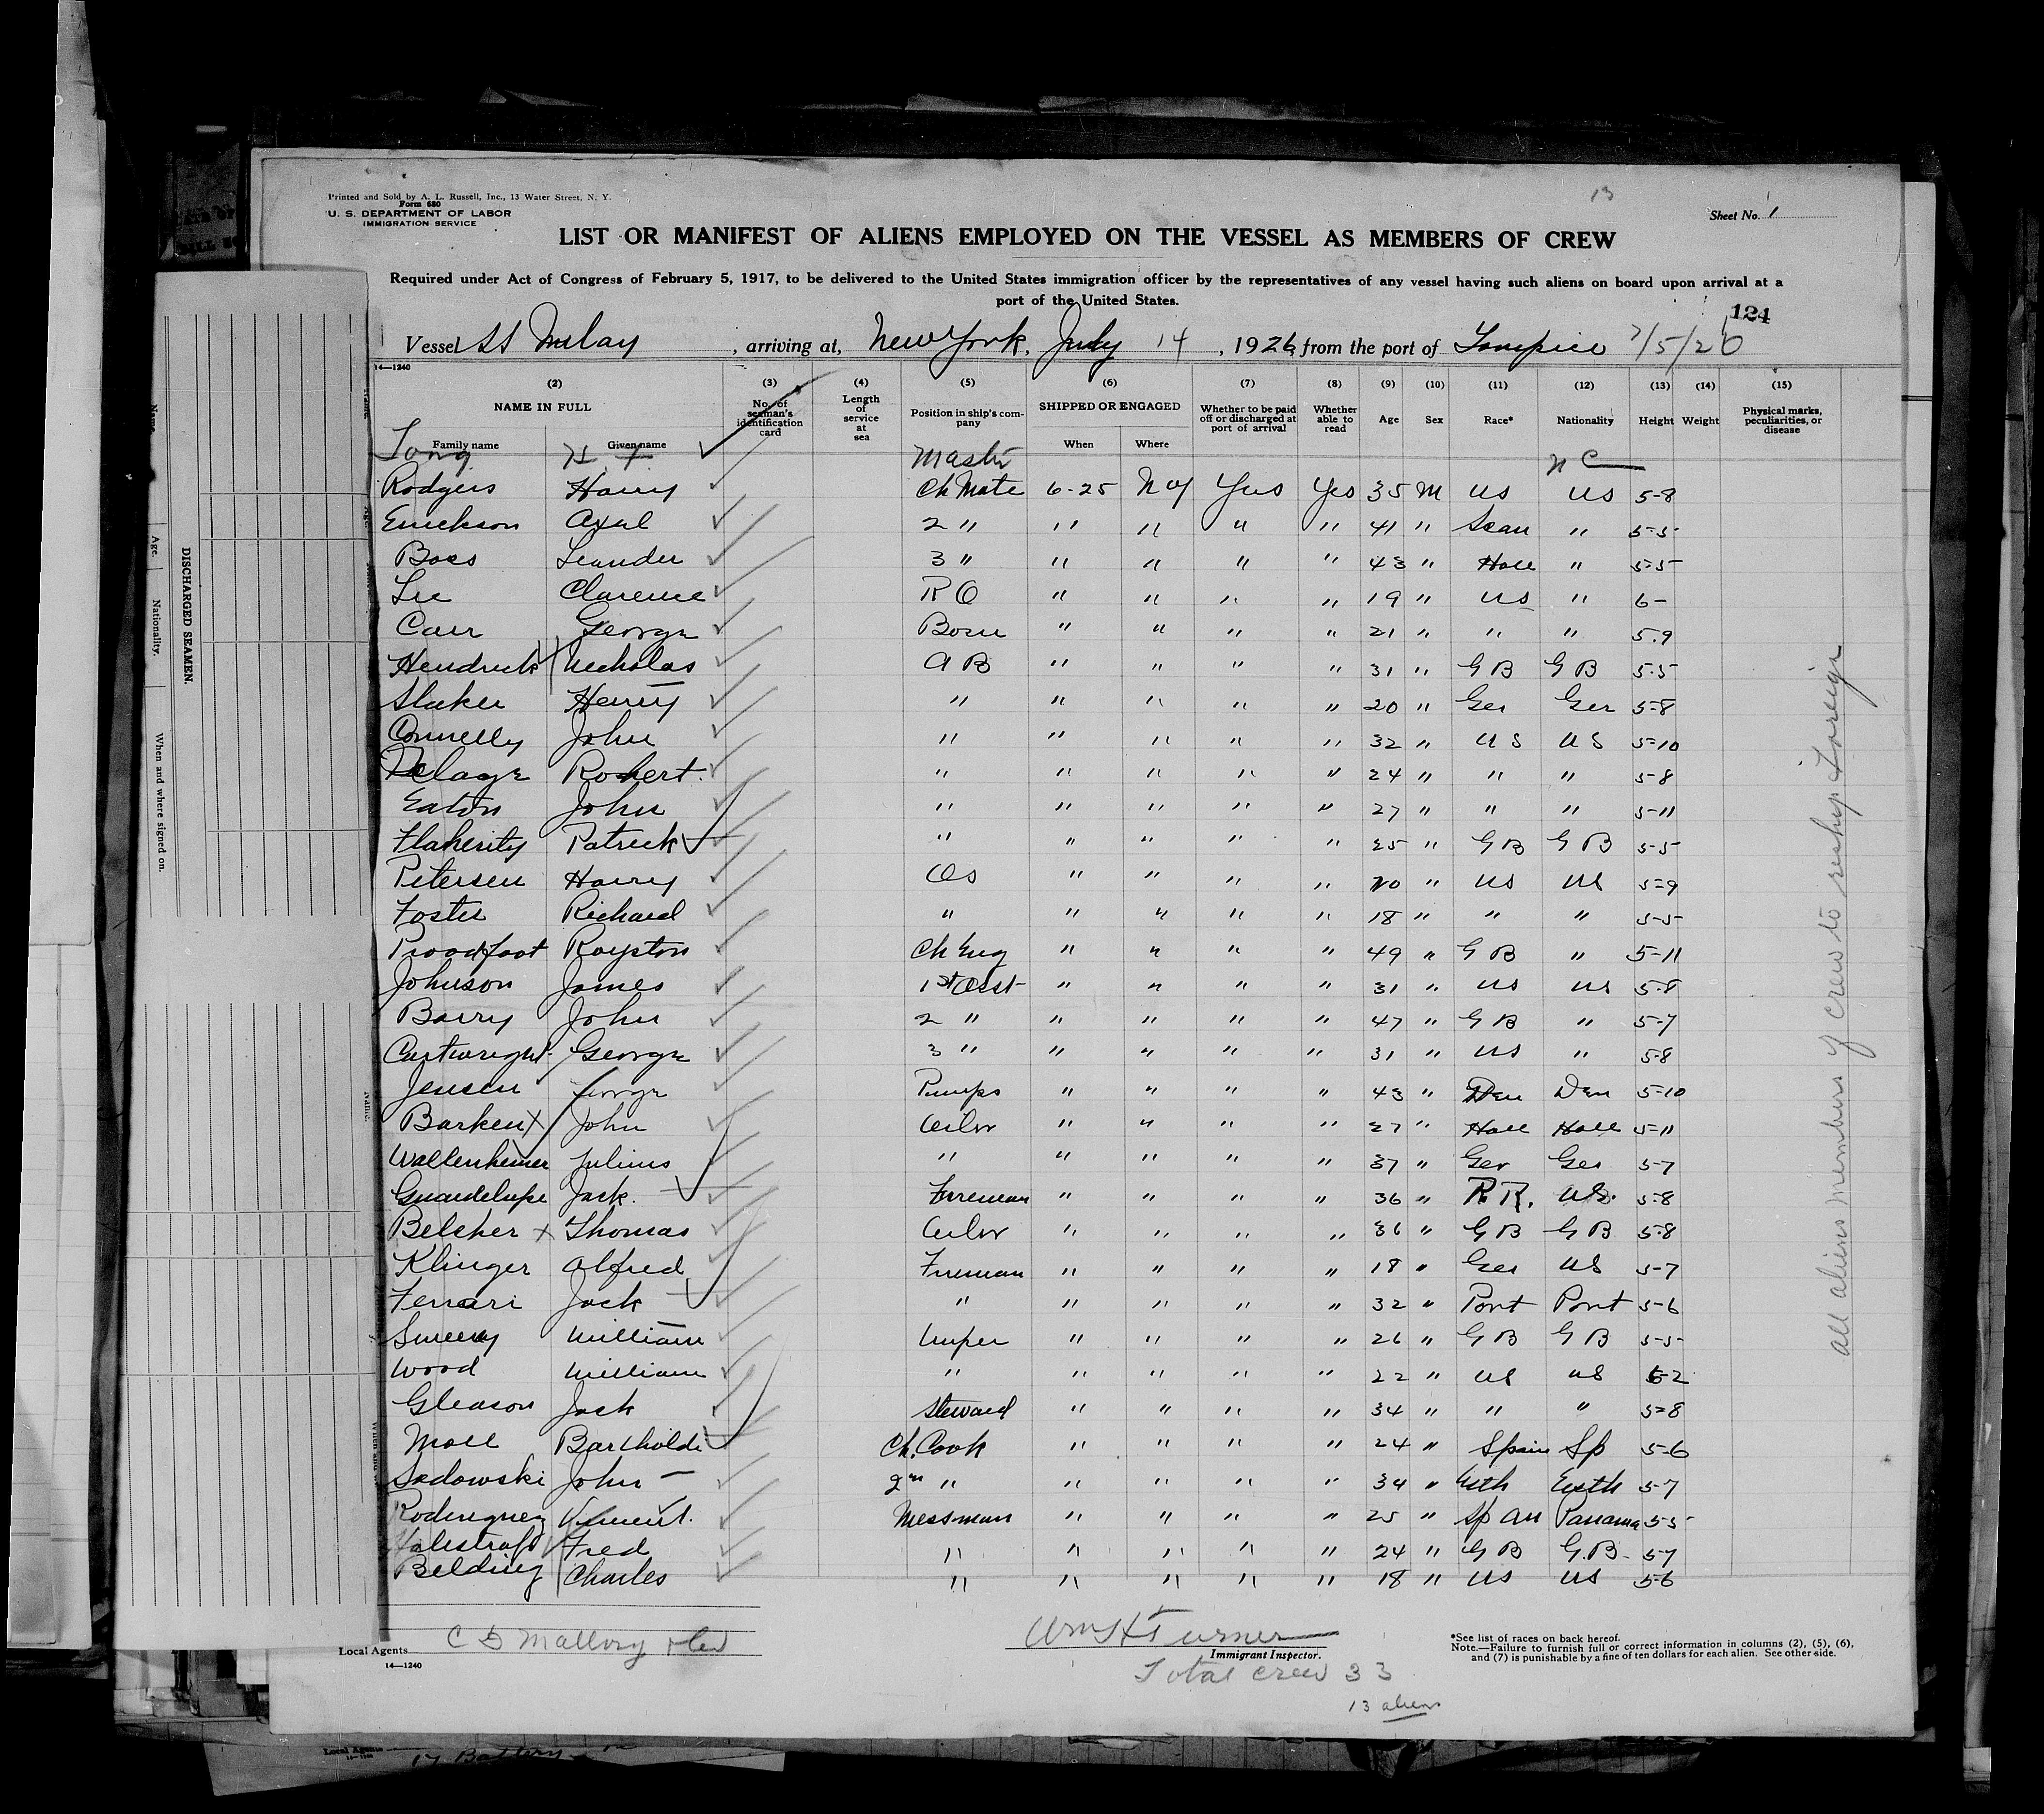 13
Printed and Sold by A. L. Russell, Inc., 13 Water Street, N. Y.
Form 680
U. S. DEPARTMENT OF LABOR
IMMIGRATION SERVICE
Sheet No. 1
LIST OR MANIFEST OF ALIENS EMPLOYED ON THE VESSEL AS MEMBERS OF CREW
Required under Act of Congress of February 5, 1917, to be delivered to the United States immigration officer by the representatives of any vessel having such aliens on board upon arrival at a
port of the United States.
124
Vessel SS , arriving at, New York, July 14, 1926, from the port of Tampico 7/5/26
14—1240
(2) (3) (4) (5) (6) (7) (8) (9) (10) (11) (12) (13) (14) (15)
NAME IN FULL No. of seaman's identification card Length of service at sea Position in ship's company SHIPPED OR ENGAGED Whether to be paid off or discharged at port of arrival Whether able to read Age Sex Race* Nationality Height Weight Physical marks, peculiarities, or disease
Family name Given name When Where
H Master
Rodgers Harry Ch Mate 6-25 NY Yes Yes 35 M US US 5-8
Erickson Axel 2 " " " " " 41 " Scan " 5-5
Leander 3 " " " " " 43 " Holl " 5-5
Lee Clarence R O " " " " 19 " US " 6-
Carr George Bosn " " " " 21 " " " 5.9
Hendrick Nicholas A B " " " " 31 " G B G B 5-5
Henry " " " " " 20 " Ger Ger 5-8
Connelly John " " " " " 32 " US US 5-10
Robert " " " " " 24 " " " 5-8
Eaton John " " " " " 27 " " " 5-11
Flaherity Patrick " " " " " 25 " G B G B 5-5
Petersen Harry OS " " " " 20 " US US 5-9
Foster Richard " " " " " 18 " " " 5-5
Proodfoot Royston Ch Eng " " " " 49 " G B " 5-11
Johnson James 1st Asst " " " " 31 " US US 5-8
Barry John 2 " " " " " 47 " G B " 5-7
Cartwright George 3 " " " " " 31 " US " 5-8
Jensen George Pumps " " " " 43 " Den Den 5-10
Barken John Oiler " " " " 27 " Holl Holl 5-11
Wallenheimer Julius " " " " " 37 " Ger Ger 5-7
Guardelupe Jack. Fireman " " " " 36 " P.R. US. 5-8
Belcher Thomas Oiler " " " " 36 " G B G B 5-8
Klinger Alfred Fireman " " " " 18 " Ger US 5-7
Ferrari Jack " " " " " 32 " Port Port 5-6
Sweeny William Wiper " " " " 26 " G B G B 5-5
Wood William " " " " " 22 " US US 2
Gleason Jack Steward " " " " 34 " " " 5-8
Moll Bartholdi Ch. Cook " " " " 24 " Spain Sp 5-6
Sadowski John 2nd " " " " " 34 " Esth Esth 5-7
Vincent. Messman " " " " 25 " Sp Am Panama 5-5
Fred " " " " " 24 " G B G.B. 5-7
Belding Charles " " " " " 18 " US US 5-6
all aliens members of crew to reship foreign
Local Agents C D Mallory
14—1240
Wm H Turner
Immigrant Inspector.
Total crew 33
13 aliens
*See list of races on back hereof.
Note.—Failure to furnish full or correct information in columns (2), (5), (6),
and (7) is punishable by a fine of ten dollars for each alien. See other side.
DISCHARGED SEAMEN.
Name
Age.
Nationality.
When and where signed on.
Local Agents
17 Battery